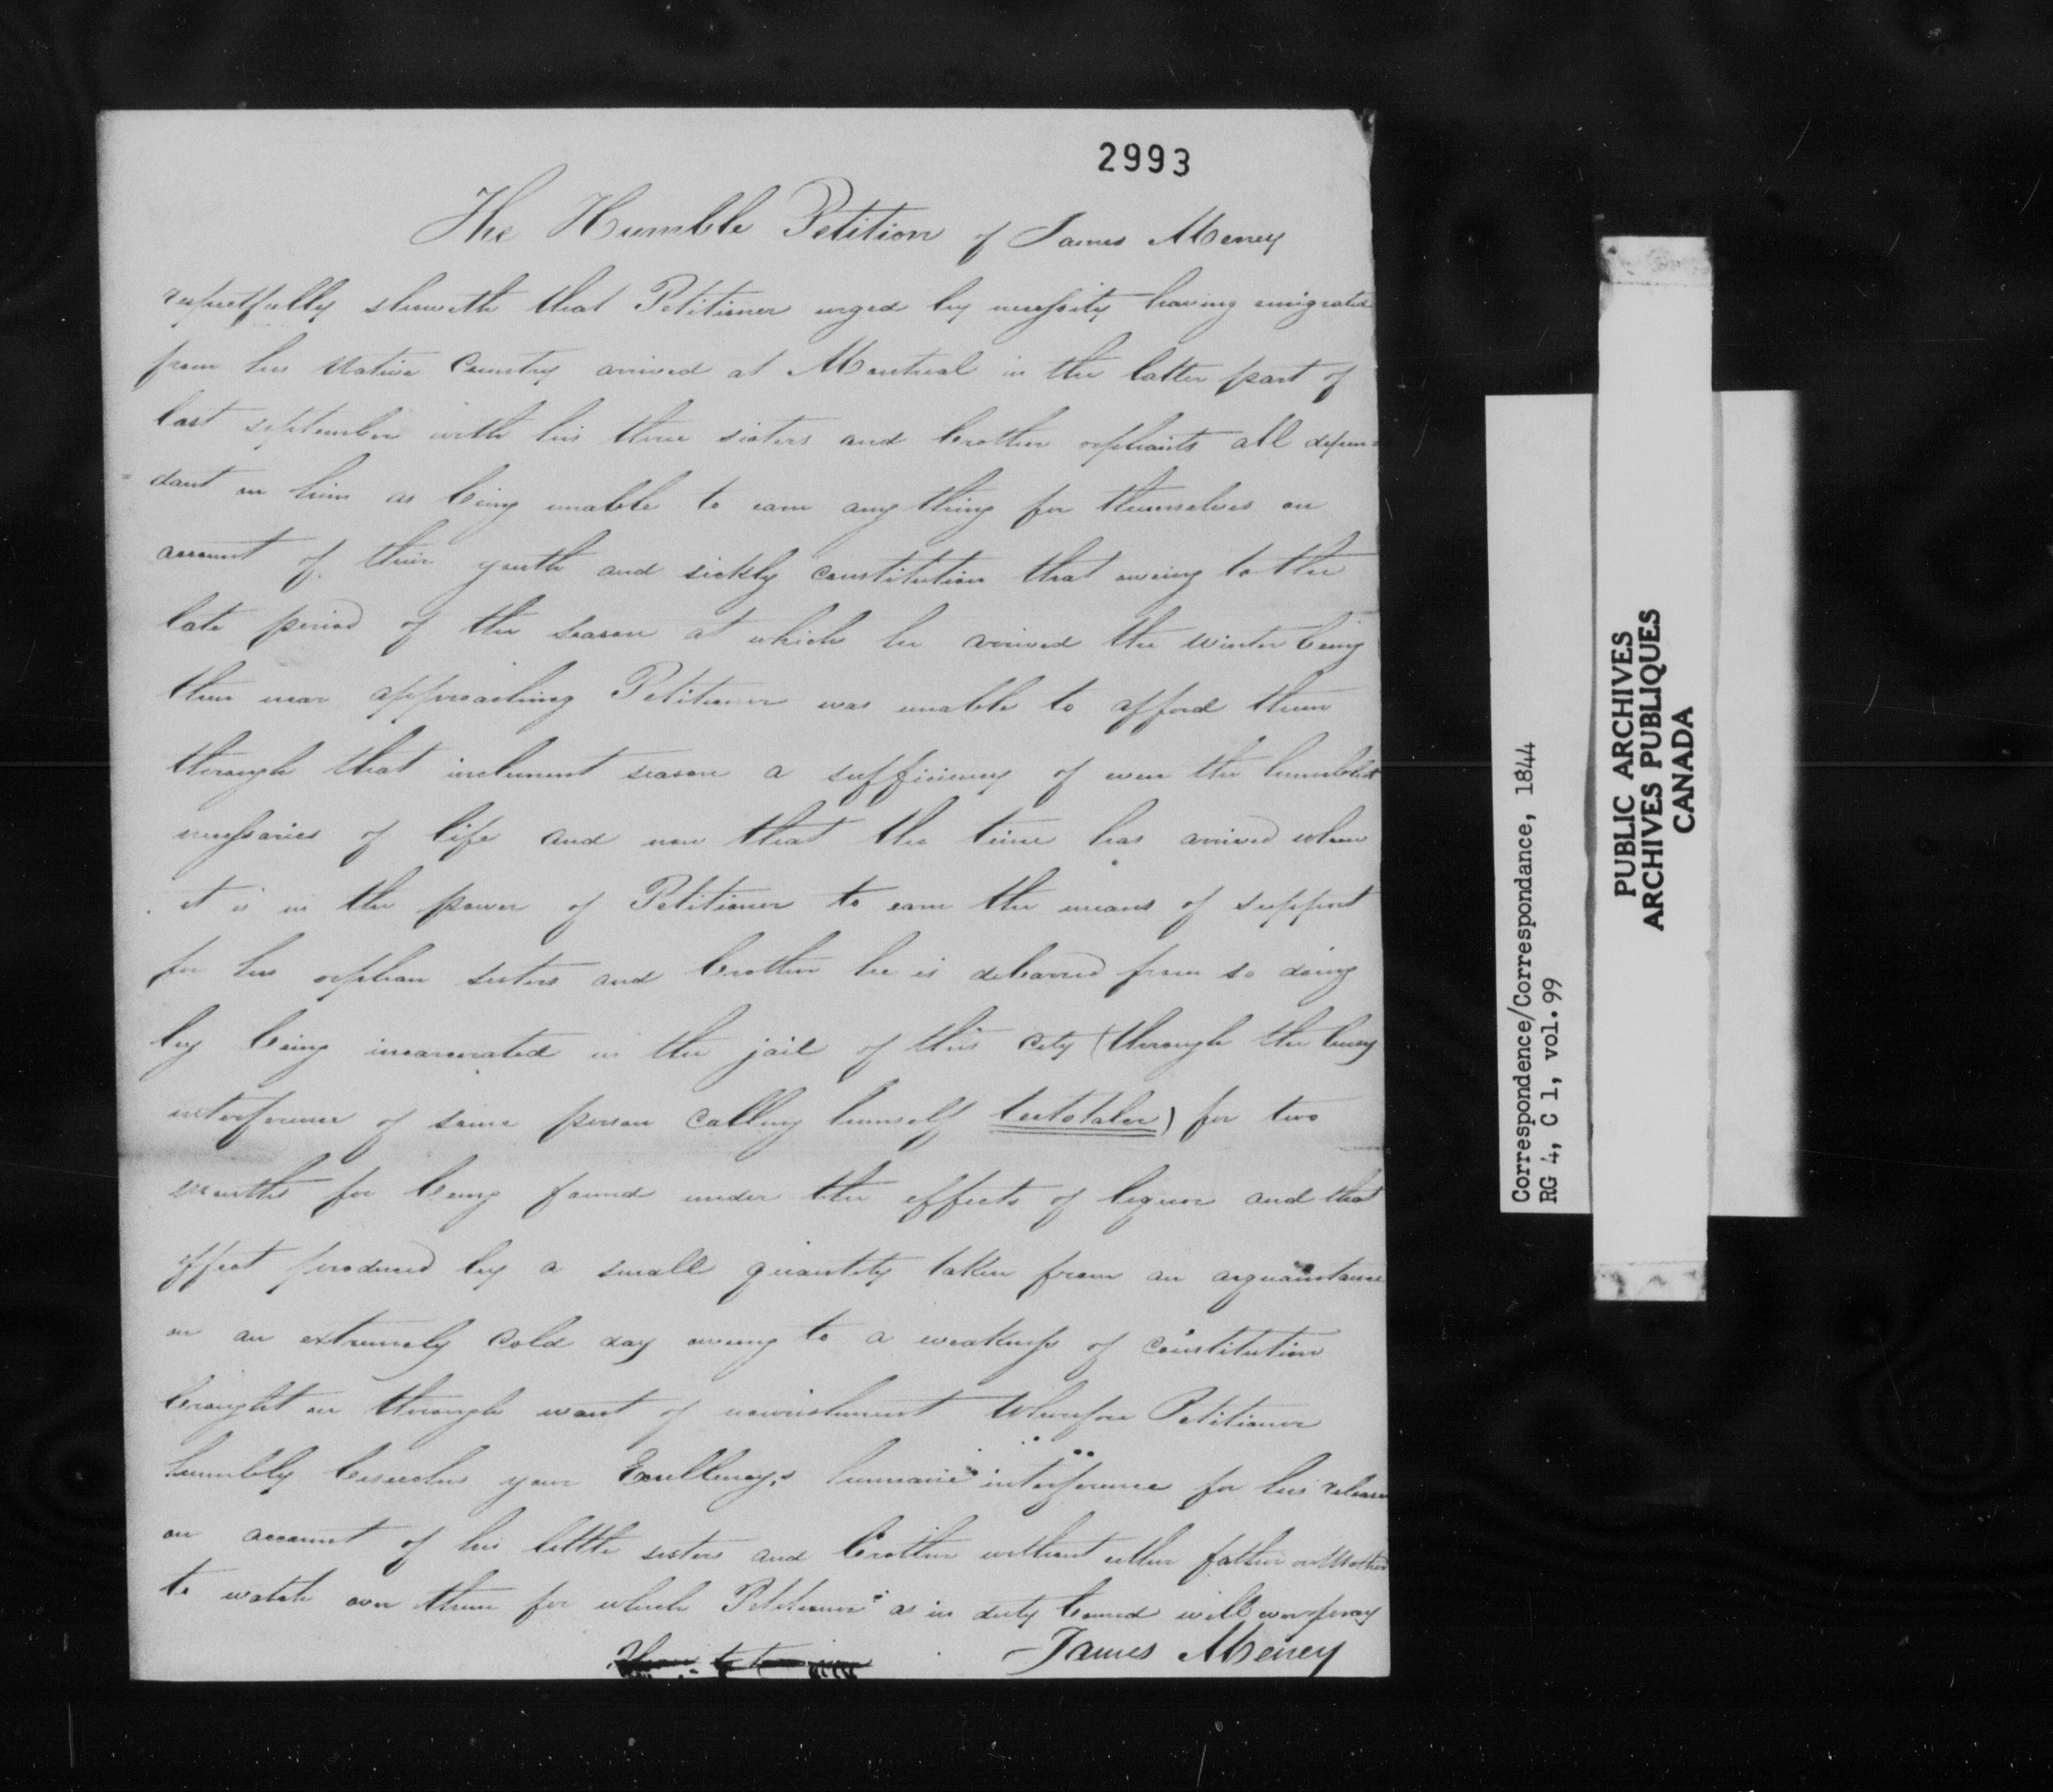 2993
The Humble Petition of James Meney
respectfully sheweth that Petitioner urged by necessity having emigrated
from his Native Country arrived at Montreal in the latter part of
last september with his three sisters and brother orphants all depen=
=dant on him as being unable to earn any thing for themselves on
account of their youth and sickly constitution that owing to the
late period of the season at which he arrived the winter being
then near approaching Petitioner was unable to afford them
through that inclement season a sufficiency of even the humblest
necessaries of life and now that the time has arrived when
it is in the power of Petitioner to earn the means of support
for his orphan sisters and brother he is debarred from so doing
by being incarcerated in the jail of this city (through the busy
interference of some person calling himself teetotaler) for two
months for being found under the effects of liquor and that
effect produced by a small quantity taken from an acquaintance
on an extremely cold day owing to a weakness of constitution
brought on through want of nourishment Wherefore Petitioner
humbly beseeches your Excellency,s humane interference for his release
on account of his little sisters and brother without either father or Mother
to watch over them for which Petitioner as in duty bound will ever pray
James Meney
Correspondence/Correspondance, 1844
RG 4, C 1, vol. 99
PUBLIC ARCHIVES
ARCHIVES PUBLIQUES
CANADA